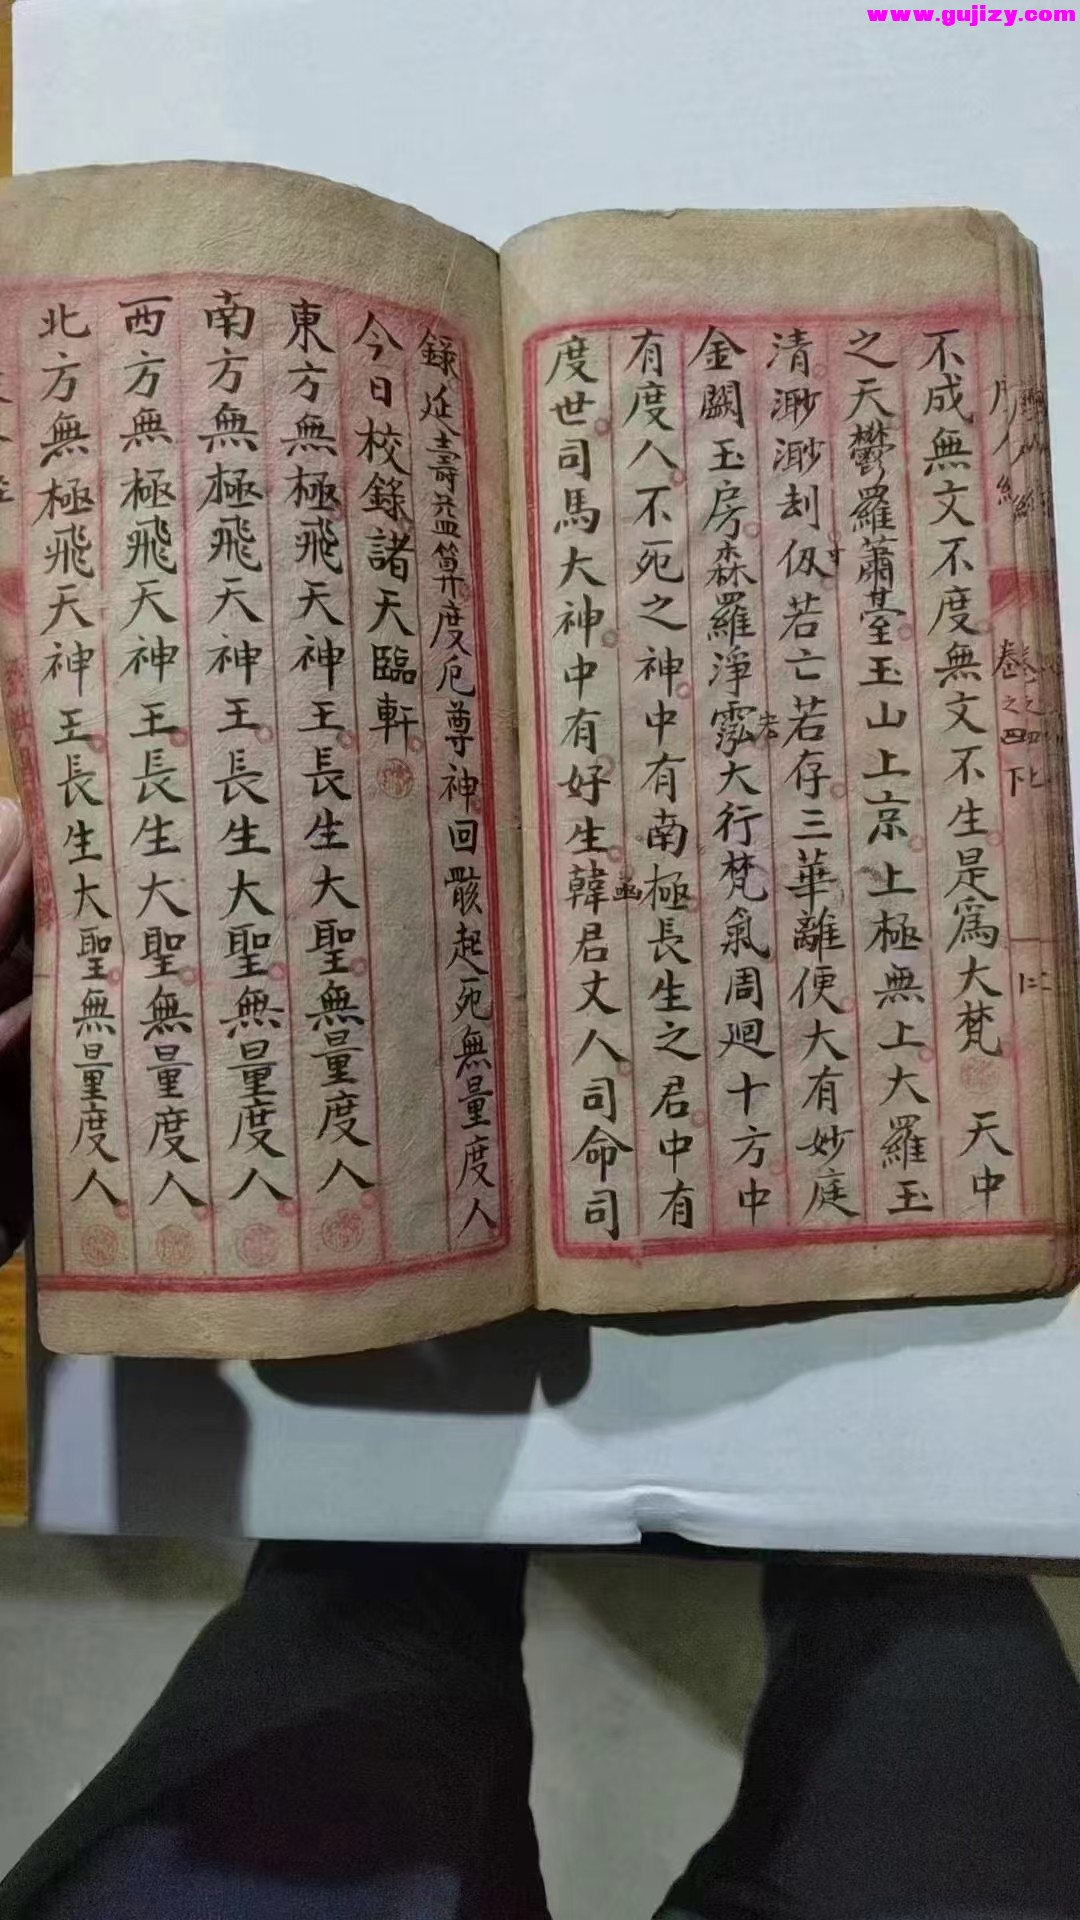 www.gujizy.com
度人經
卷之四下
不成無文不度無文不生是爲大梵 天中
之天鬱羅蕭臺玉山上京上極無上大羅玉
清渺渺刦仭若亡若存三華離便大有妙庭
金闕玉房森羅淨泓大行梵氣周廻十方中
有度人不死之神中有南極長生之君中有
度世司馬大神中有好生韓君丈人司命司
錄延壽益筭度厄尊神回骸起死無量度人
今日校錄諸天臨軒
東方無極飛天神王長生大聖無量度人
南方無極飛天神王長生大聖無量度人
西方無極飛天神王長生大聖無量度人
北方無極飛天神王長生大聖無量度人